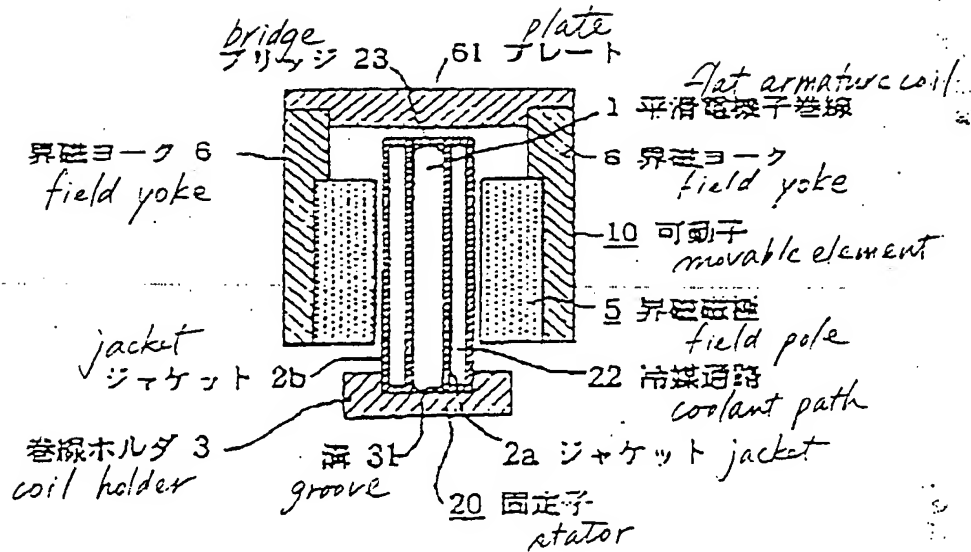 bridge
ブリッジ 23
plate
61 プレート
flat armature coil
1 平滑電機子巻線
界磁ヨーク 6
field yoke
6 界磁ヨーク
field yoke
10 可動子
movable element
5 界磁磁極
field pole
jacket
ジャケット 2b
22 冷媒通路
coolant path
巻線ホルダ 3
coil holder
溝 31
groove
2a ジャケット jacket
20 固定子
stator